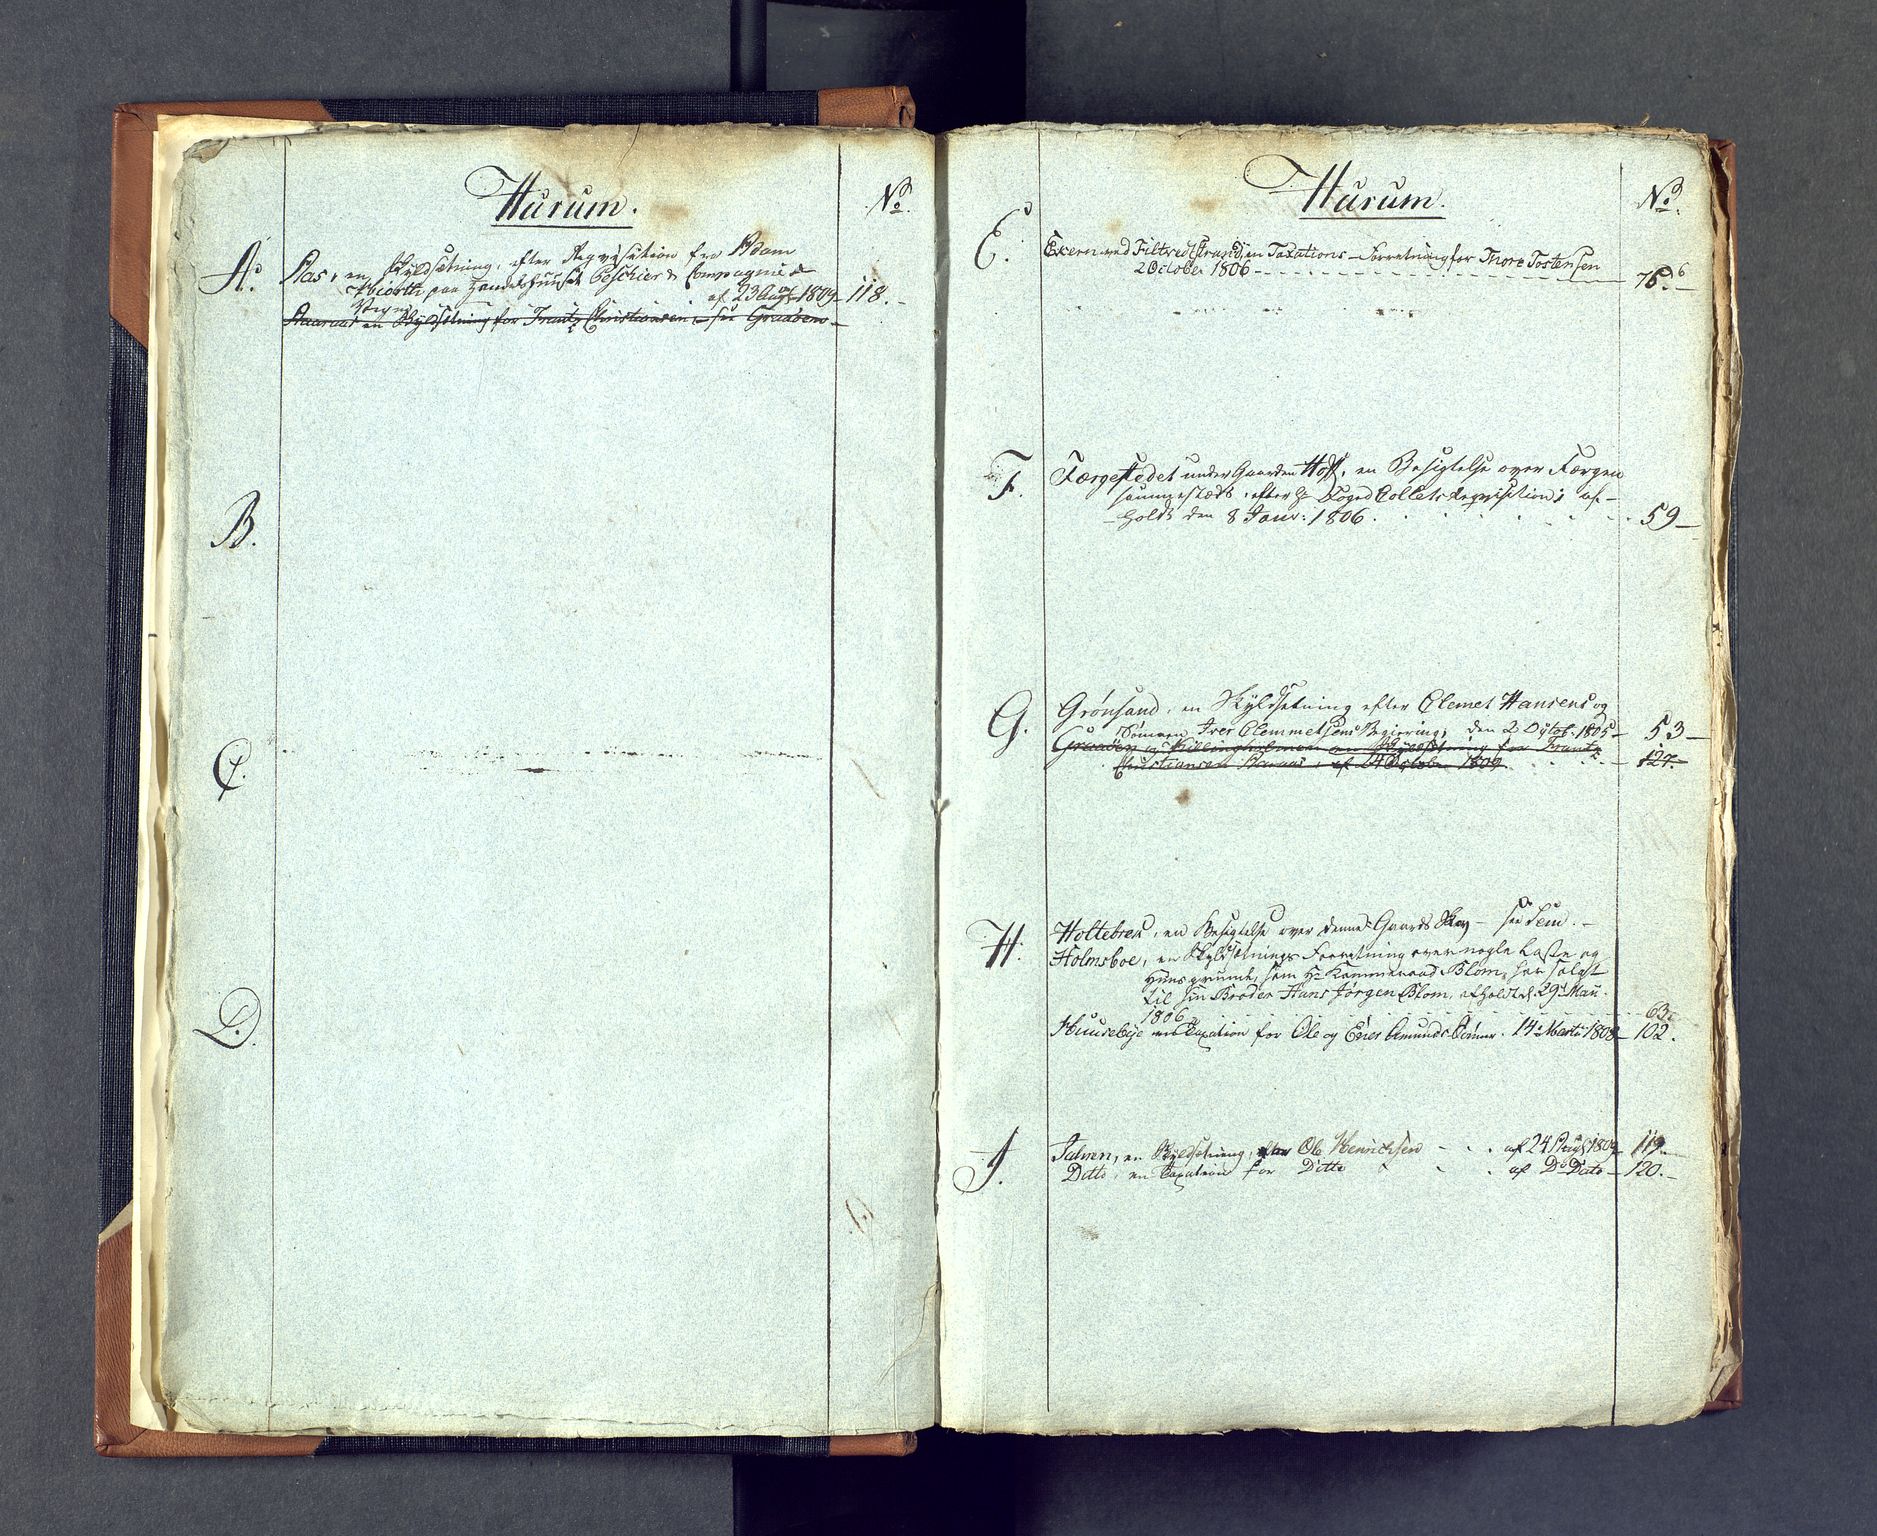 Hurum.
No.
A.
Aas, en Skyldsætning, efter Reqvisition fra Adam
Hiorth paa Handelshuuset Peschier & Compagnie &
af 23 Augt 1809 118.
en Skyldsætning for Frantz Christiansen see Graaøen
B.
C.
D.
Hurum.
No.
E.
ved Filtvedt Strand, en Taxations-Forretning for Thore Tostensen
2 October 1806 76.
F.
Færgestedet under Gaarden Hoff, en Besigtelse over Færgen
sammestæds, efter Hr Foged Collets Reqvisition; af-
holdt den 8 Janr: 1806. 59
G.
Grønsand, en Skyldsetning efter Clemet Hansens og
Sønnen Iver Clemmetsens Begiering, den 2 Octob. 1805 53
Graaøen og Killingholmen en Skyldsetning for Frantz
Christiansen af 24 October 1809 127.
H.
Holtebrek, en Besigtelse over denne Gaards Skov - see Sem.
Holmsboe, en Skyldsætnings Forretning over nogle Laste og
Huusgrunde, som Hr Kammerraad Blom, har solgt
til sin Broder Hans Jørgen Blom, afholdt d. 29d Maii.
1806 63.
Huusebye en Taxation for Ole og Ener Amunds Sønner. 14de Martii 1808 102.
J.
en Skyldsetning, efter Ole Henrichsen af 24 Augt 1809 119.
Ditto, en Taxation for Ditto af Do Dato 120.